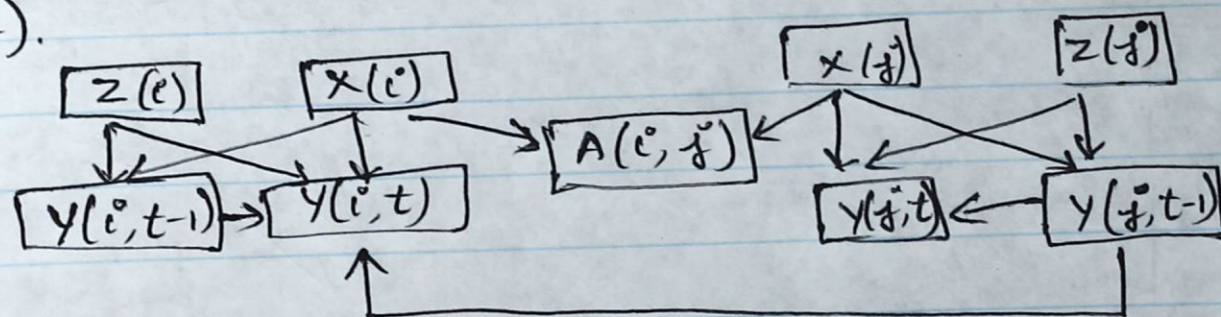 ).
Z(i) X(i) X(j) Z(j)
A(i, j)
Y(i, t-1) Y(i, t) Y(j, t) Y(j, t-1)